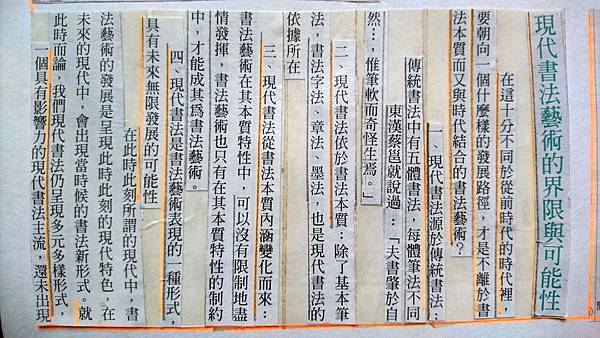 現代書法藝術的界限與可能性
在這十分不同於從前時代的時代裡，
要朝向一個什麼樣的發展路徑，才是不離於書
法本質而又與時代結合的書法藝術？
一、現代書法源於傳統書法：
傳統書法中有五體書法，每體筆法不同
東漢蔡邕就說過：「夫書肇於自
然…，惟筆軟而奇怪生焉。」
二、現代書法依於書法本質：除了基本筆
法，書法字法、章法、墨法，也是現代書法的
依據所在
三、現代書法從書法本質內涵變化而來：
書法藝術在其本質特性中，可以沒有限制地盡
情發揮，書法藝術也只有在其本質特性的制約
中，才能成其爲書法藝術。
四、現代書法是書法藝術表現的一種形式，
具有未來無限發展的可能性
在此時此刻所謂的現代中，書
法藝術的發展是呈現此時此刻的現代特色，在
未來的現代中，會出現當時候的書法新形式。就
此時而論，我們現代書法仍呈現多元多樣形式，
一個具有影響力的現代書法主流，還未出現